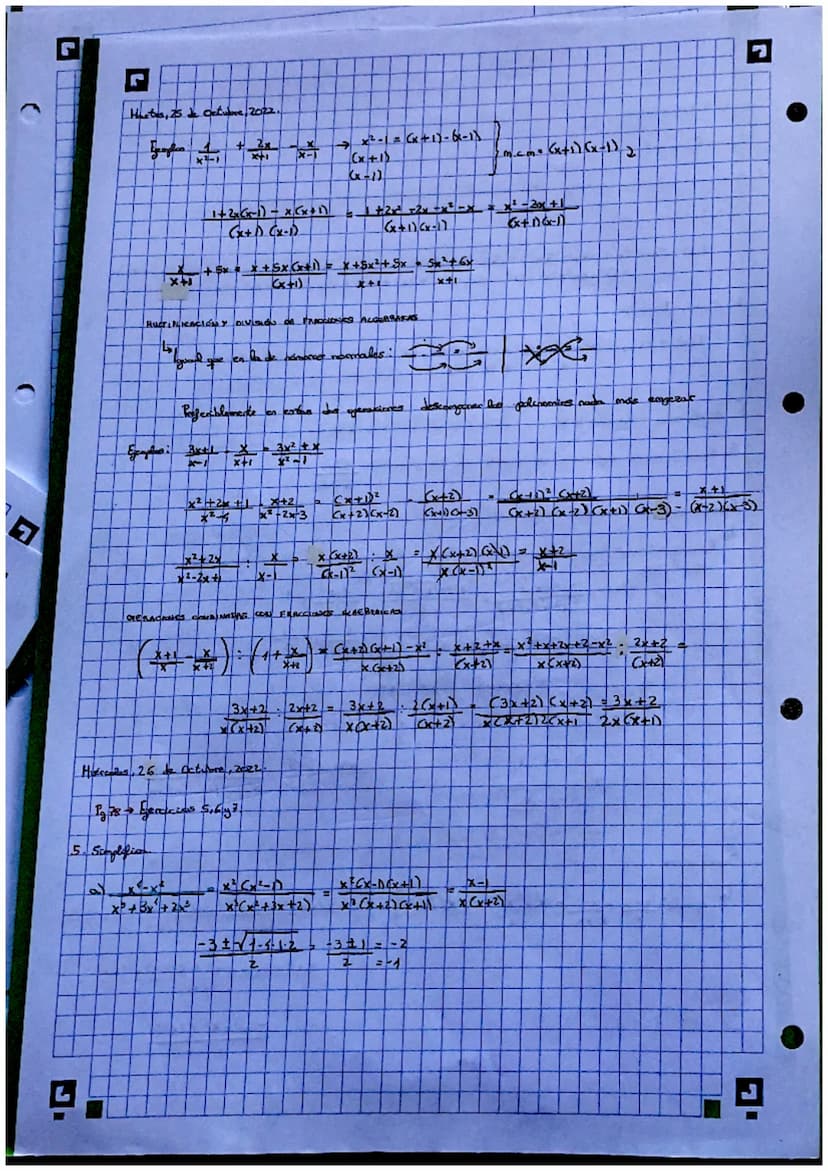 Martes, 25 de Octubre, 2022.
Ejemplos 1/(x²-1) + 2x/(x+1) - x/(x-1) → x²-1 = (x+1)·(x-1)
(x+1)
(x-1)
m.c.m = (x+1)(x-1)
(1+2x(x-1) - x(x+1))/((x+1)(x-1)) = (1+2x²-2x-x²-x)/((x+1)(x-1)) = (x²-3x+1)/((x+1)(x-1))
x/(x+1) + 5x = (x+5x(x+1))/(x+1) = (x+5x²+5x)/(x+1) = (5x²+6x)/(x+1)
MULTIPLICACIÓN Y DIVISIÓN DE FRACCIONES ALGEBRAICAS
↳ Igual que en la de números normales:
Preferiblemente en estas dos operaciones descomponer los polinomios nada más empezar
Ejemplos: (3x+1)/(x-1) · x/(x+1) = (3x²+x)/(x²-1)
(x²+2x+1)/(x²-4) · (x+2)/(x²-2x-3) = (x+1)²/((x+2)(x-2)) · (x+2)/((x+1)(x-3)) = ((x+1)²(x+2))/((x+2)(x-2)(x+1)(x-3)) = (x+1)/((x-2)(x-3))
(x²+2x)/(x²-2x+1) : x/(x-1) = x(x+2)/(x-1)² : x/(x-1) = (x(x+2)(x-1))/(x(x-1)²) = (x+2)/(x-1)
OPERACIONES COMBINADAS CON FRACCIONES ALGEBRAICAS
((x+1)/x - x/(x+2)) : (1 + x/(x+2)) = ((x+2)(x+1)-x²)/(x(x+2)) : (x+2+x)/(x+2) = (x²+x+2x+2-x²)/(x(x+2)) : (2x+2)/(x+2) =
(3x+2)/(x(x+2)) : (2x+2)/(x+2) = (3x+2)/(x(x+2)) : 2(x+1)/(x+2) = ((3x+2)(x+2))/(x(x+2)2(x+1) = (3x+2)/(2x(x+1))
Miércoles, 26 de Octubre, 2022.
Pg 78 → Ejercicios 5, 6 y 7.
5. Simplifica
a) (x⁴-x²)/(x⁵+3x⁴+2x³) = x²(x²-1)/(x³(x²+3x+2)) = x²(x-1)(x+1)/(x³(x+2)(x+1)) = (x-1)/(x(x+2))
(-3±√(9-4·1·2))/2 = (-3±1)/2 = -2
= -1